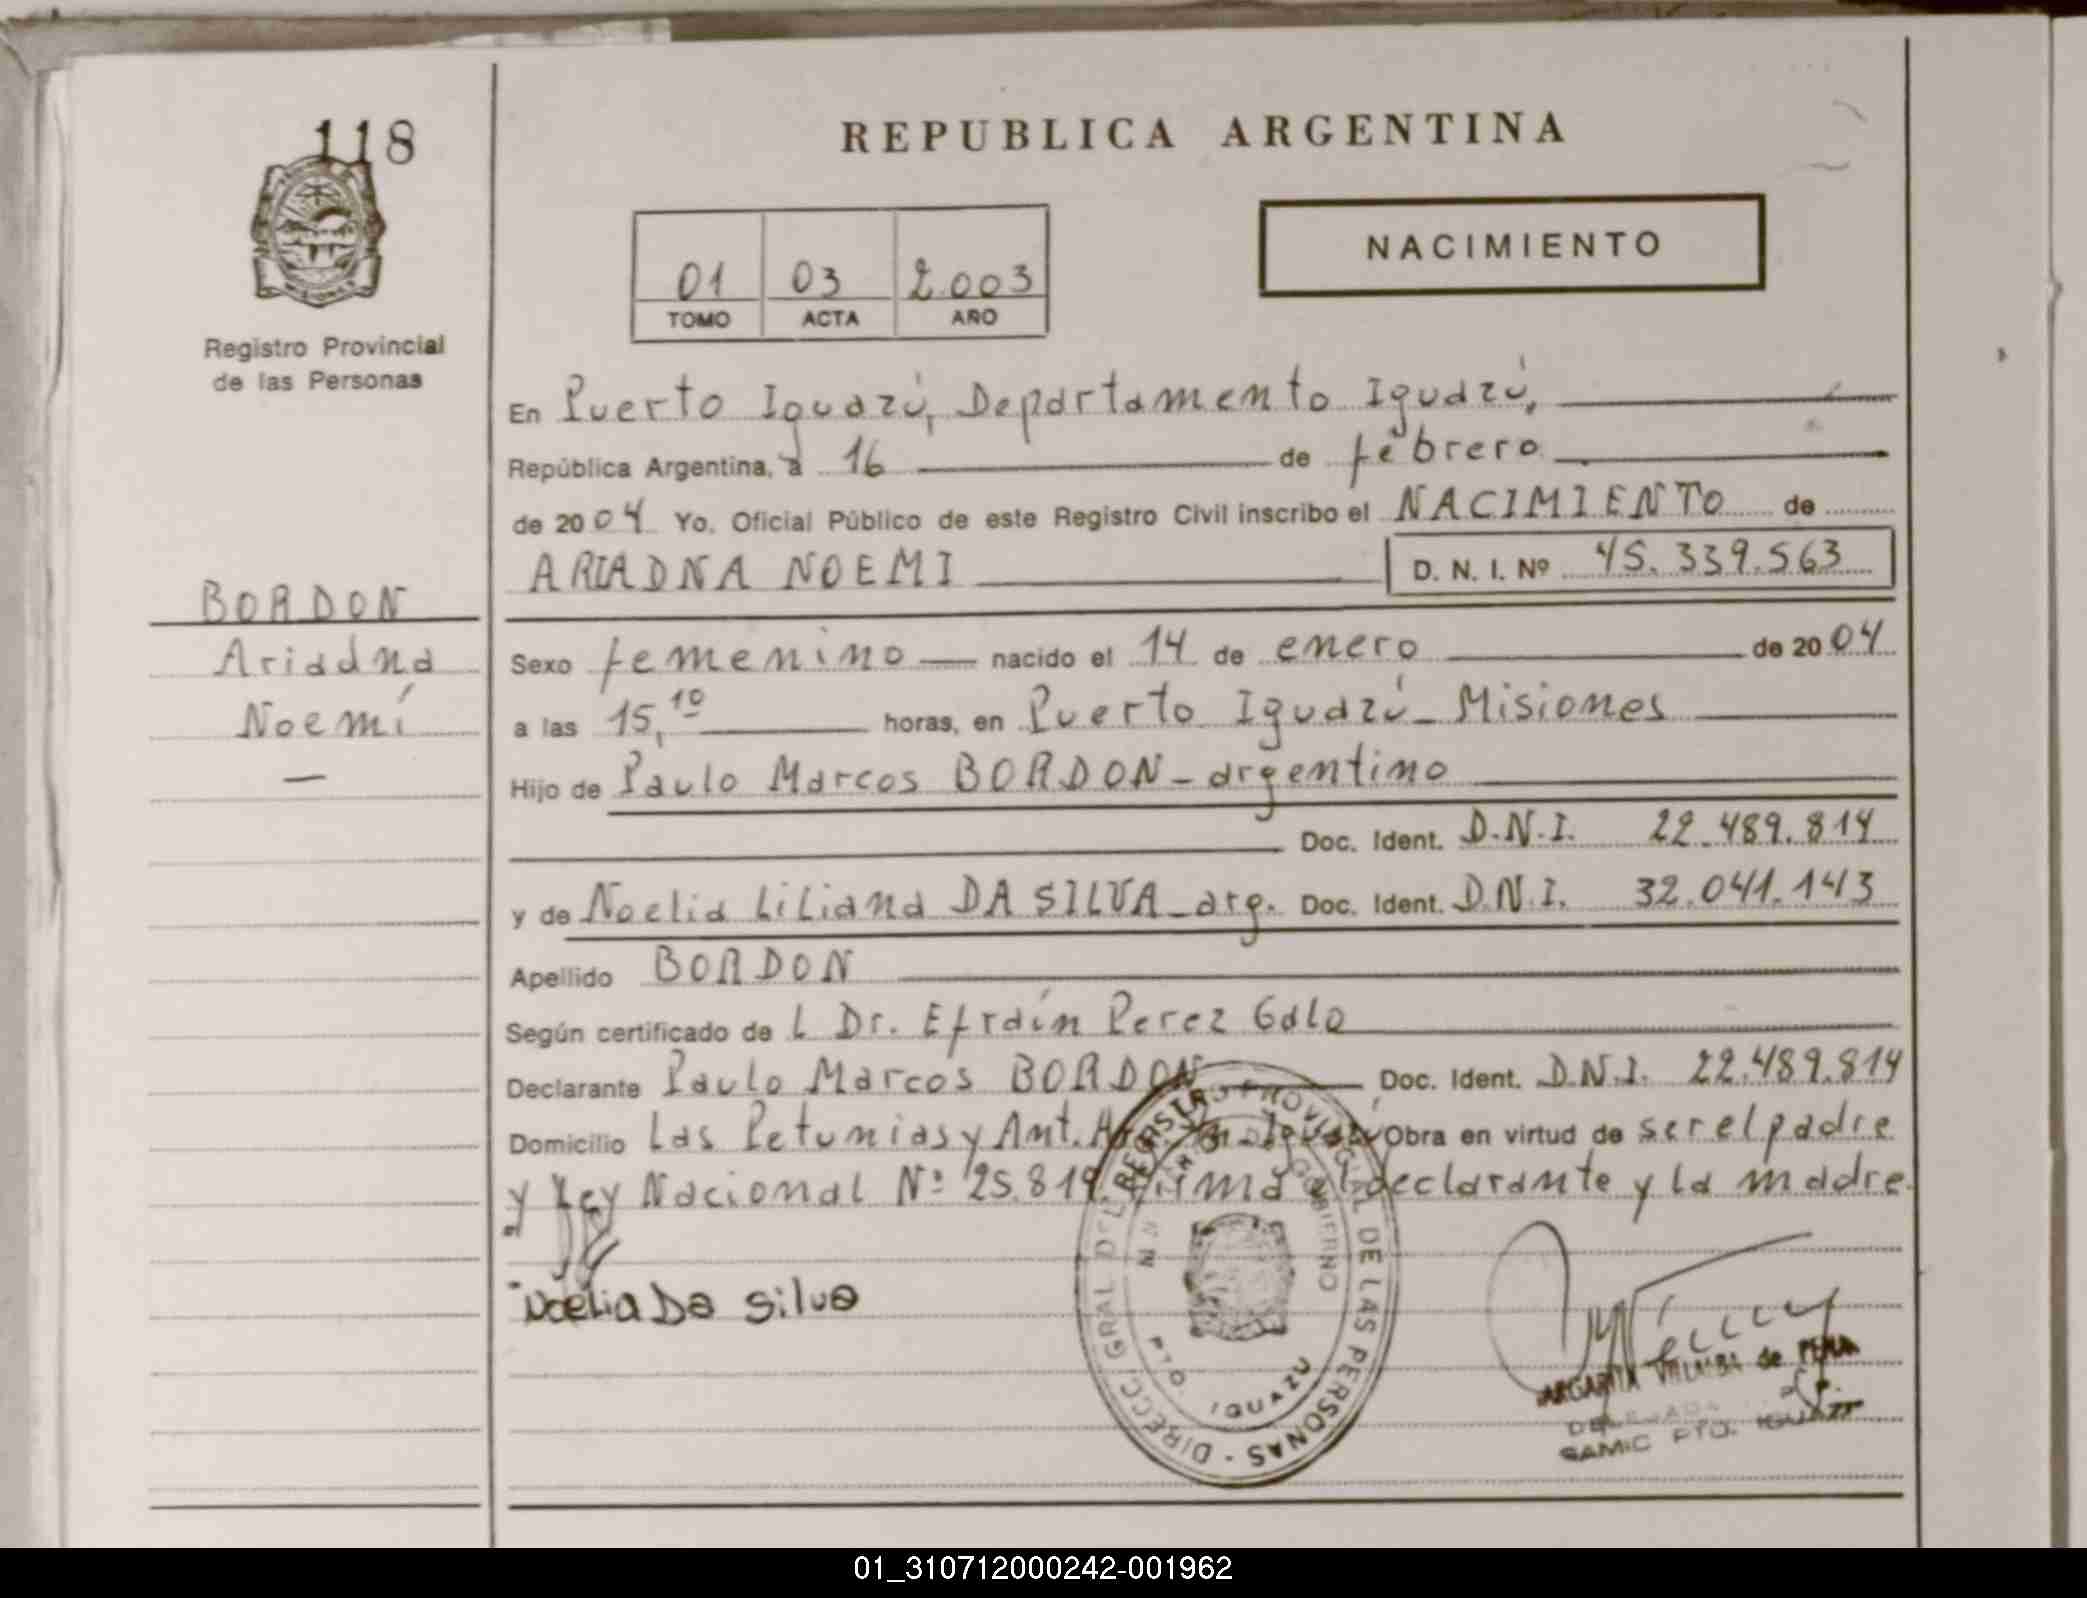 118
REPUBLICA ARGENTINA
NACIMIENTO
01 03 2.003
TOMO ACTA AÑO
Registro Provincial
de las Personas
En Puerto Iguazú, Departamento Iguazú,
República Argentina, a 16 de febrero
de 2004 Yo. Oficial Público de este Registro Civil inscribo el NACIMIENTO de
ARIADNA NOEMI D. N. I. Nº 45.339.563
BORDON
Ariadna
Noemí
Sexo femenino nacido el 14 de enero de 2004
a las 15,10 horas, en Puerto Iguazú - Misiones
Hijo de Paulo Marcos BORDON - argentino
Doc. Ident. D.N.I. 22.489.814
y de Noelia Liliana DA SILVA - arg. Doc. Ident. D.N.I. 32.041.143
Apellido BORDON
Según certificado de L Dr. Efraín Perez Galo
Declarante Paulo Marcos BORDON Doc. Ident. D.N.I. 22.489.814
Domicilio Las Petunias y Ant. Obra en virtud de ser el padre
y Ley Nacional Nº 25.819. Firma el declarante y la madre.
Noelia Da Silva
DIRECC. GRAL DEL REGISTRO PROVINCIAL DE LAS PERSONAS
GOBIERNO
PTO. IGUAZU
MARGARITA VILLALBA de PEÑA
DELEGADA
SAMIC PTO. IGUAZU
01_310712000242-001962